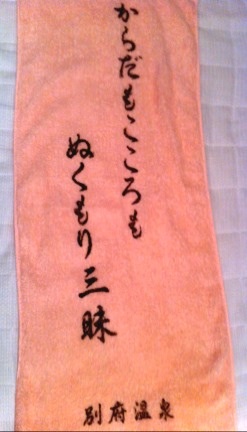 からだもこころも
ぬくもり三昧
別府温泉